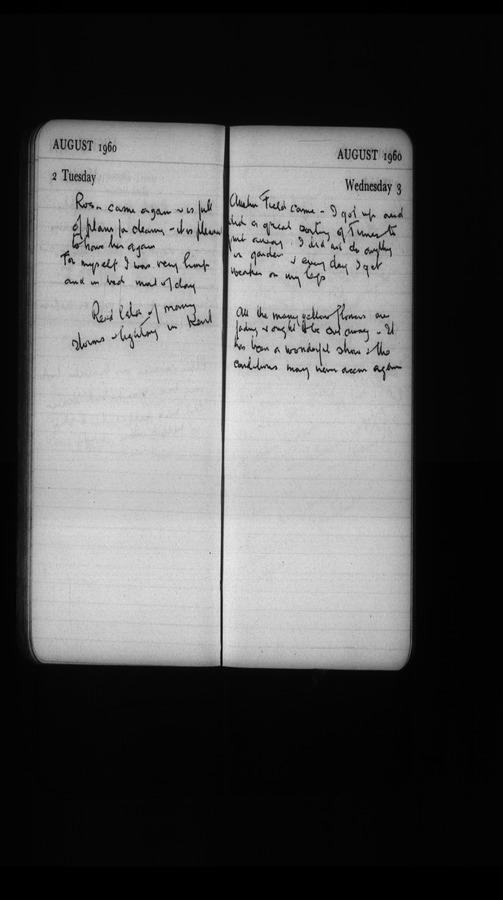 AUGUST 1960
2 Tuesday
Rosa came again & is full
of plans for cleaning - it is pleasant
to have her again
For myself I was very limp
and in bed most of day
Read later of many
storms & lightning in Kent
AUGUST 1960
Wednesday 3
Field came - I got up and
did a great sorting of Times to
put away. I did not do anything
in garden & every day I get
weaker on my legs
All the many yellow flowers are
fading & ought to be cut away - It
has been a wonderful show & the
conditions may never occur again